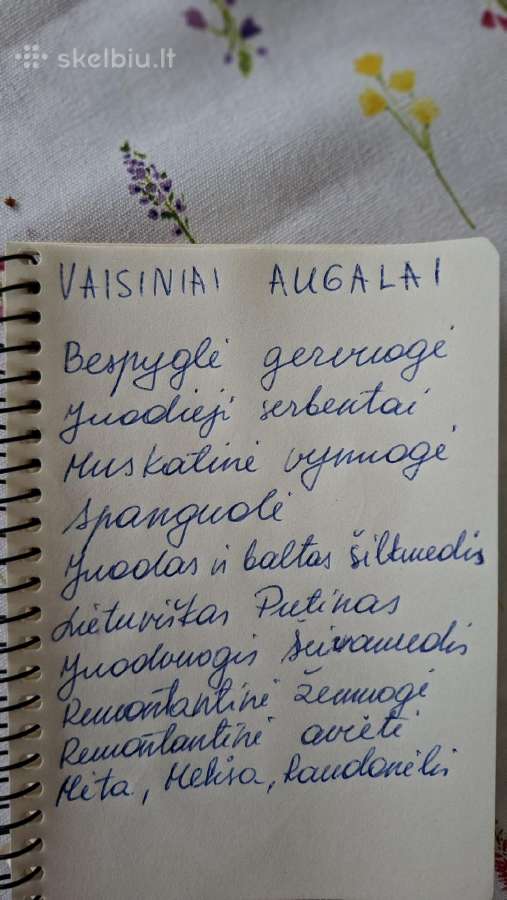 skelbiu.lt
VAISINIAI AUGALAI
Bespyglė gervuogė
Juodieji serbentai
Muskatinė vynuogė
Spanguolė
Juodas ir baltas šilkmedis
Lietuviškas Putinas
Juoduogis šeivamedis
Remontantinė žemuogė
Remontantinė avietė
Mėta, Melisa, Raudonėlis